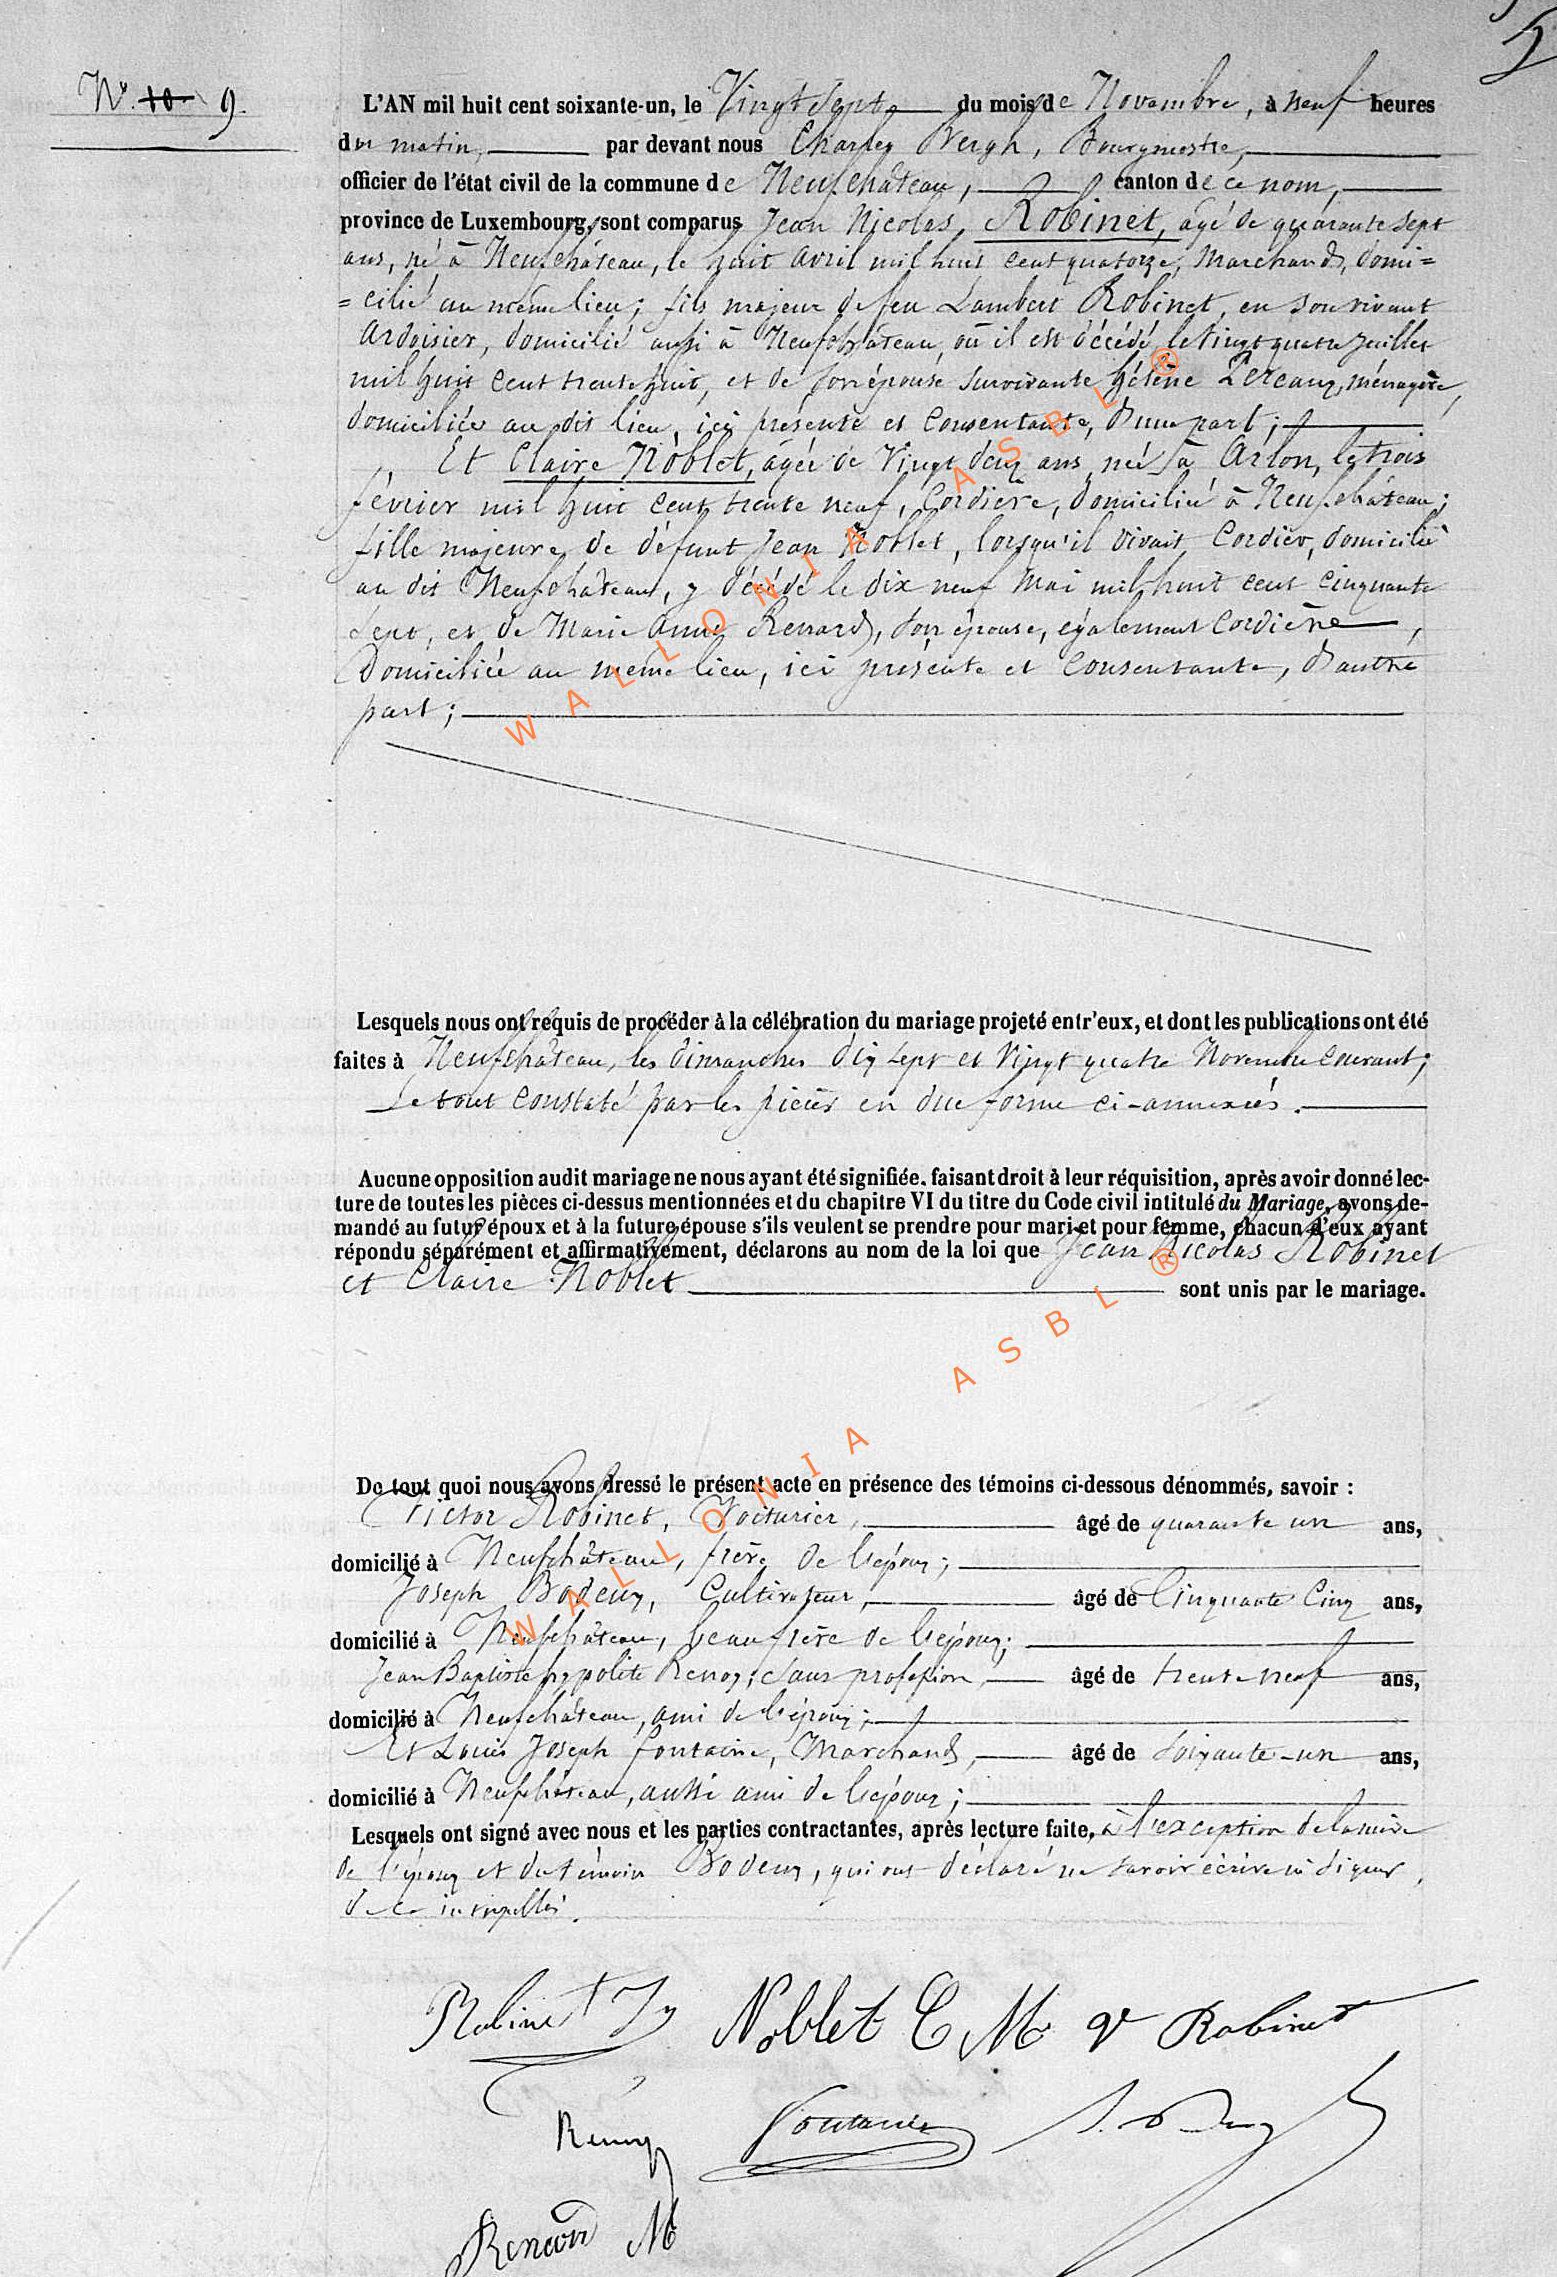 5
N° 10 9.
L'AN mil huit cent soixante-un, le Vingt sept du mois de Novembre, à neuf heures
du matin, par devant nous Charles Bergh, Bourgmestre,
officier de l'état civil de la commune de Neufchâteau, canton de ce nom,
province de Luxembourg, sont comparus Jean Nicolas Robinet, âgé de quarante sept
ans, né à Neufchâteau, le huit avril mil huit cent quatorze, Marchand, domi=
=cilié au même lieu; fils majeur de feu Lambert Robinet, en son vivant
ardoisier, domicilié aussi à Neufchâteau, où il est décédé le vingt quatre juillet
mil huit cent trente huit, et de son épouse survivante hélène, ménagère,
domiciliée au dit lieu, ici présente et consentante, d'une part;
Et Claire Noblet, âgée de Vingt deux ans, née à Arlon, le trois
février mil huit cent trente neuf, Cordière, domiciliée à Neufchâteau;
fille majeure de défunt Jean Noblet, lorsqu'il vivait Cordier, domicilié
au dit Neufchâteau, y décédé le dix neuf Mai mil huit cent cinquante
sept, et de Marie anne Renard, son épouse, également Cordière,
Domiciliée au même lieu, ici présente et consentante, d'autre
part;
Lesquels nous ont requis de procéder à la célébration du mariage projeté entr'eux, et dont les publications ont été
faites à Neufchâteau, les dimanches dix sept et Vingt quatre Novembre courant;
Le tout constaté par les pièces en due forme ci-annexées.
Aucune opposition audit mariage ne nous ayant été signifiée. faisant droit à leur réquisition, après avoir donné lec-
ture de toutes les pièces ci-dessus mentionnées et du chapitre VI du titre du Code civil intitulé du Mariage, avons de-
mandé au futur époux et à la future épouse s'ils veulent se prendre pour mari et pour femme, chacun d'eux ayant
répondu séparément et affirmativement, déclarons au nom de la loi que Jean Nicolas Robinet
et Claire Noblet sont unis par le mariage.
De tout quoi nous avons dressé le présent acte en présence des témoins ci-dessous dénommés, savoir :
Victor Robinet, Voiturier, âgé de quarante un ans,
domicilié à Neufchâteau, frère de l'époux;
Joseph Bodeux, Cultivateur, âgé de Cinquante Cinq ans,
domicilié à Neufchâteau, beau frère de l'époux;
Jean Baptiste hypolite, sans profession, âgé de trente neuf ans,
domicilié à Neufchâteau, ami de l'époux;
Et Louis Joseph fontaine, Marchand, âgé de soixante-un ans,
domicilié à Neufchâteau, aussi ami de l'époux;
Lesquels ont signé avec nous et les parties contractantes, après lecture faite, à l'exception de la mère
de l'époux et du témoin Bodeux, qui ont déclaré ne savoir écrire ni signer,
de ce interpellés.
Robinet Noblet C M V Robinet
fontaine
Renard M
WALLONIA ASBL ®
WALLONIA ASBL ®